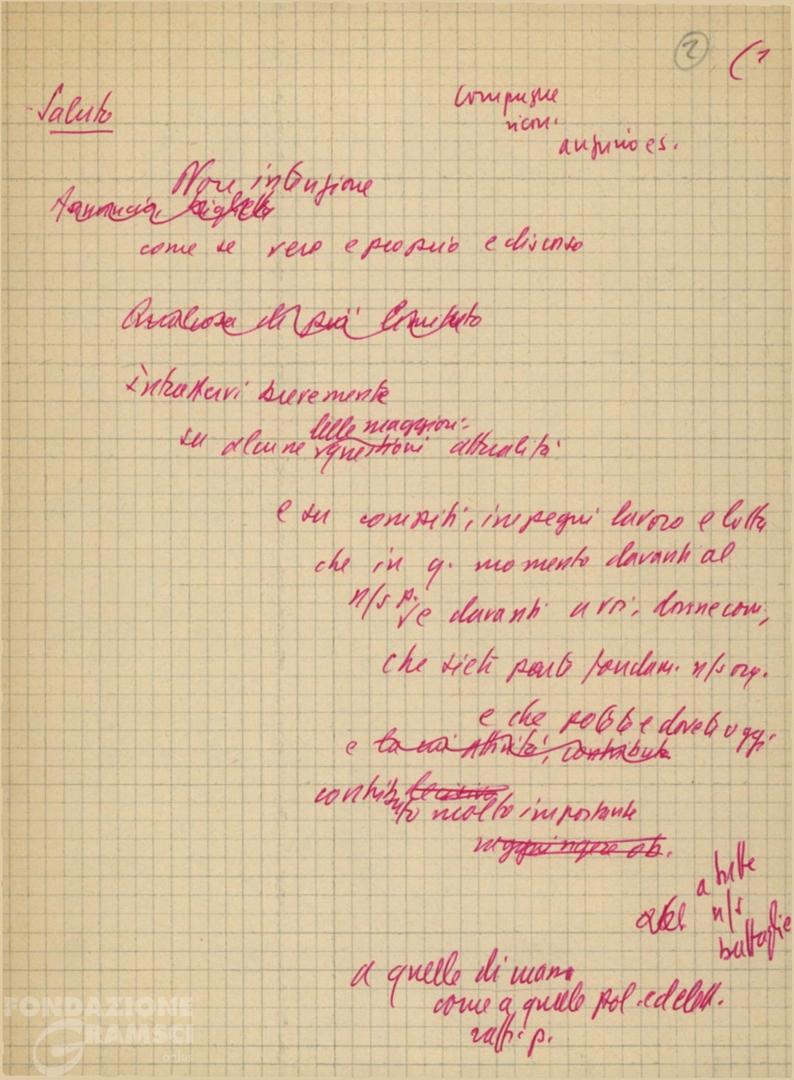 2 (1
Saluto
Compagne
ricon.
augurio es.
Non intenzione
Annuncia
come se vero e proprio e discorso
Qualcosa di più limitato
intrattervi brevemente
delle maggiori
su alcune questioni attualità
e su compiti, impegni lavoro e lotta
che in q. momento davanti al
n/s p. e davanti a voi, donne com,
che siete parte fondam. n/s org.
e che potete e dovete oggi
e la cui attività, contributo
contributo decisivo
molto importante
raggiungere ob.
a tutte
n/s
battaglie
a quelle di massa
come a quelle pol. ed elett.
raff. p.
FONDAZIONE
GRAMSCI